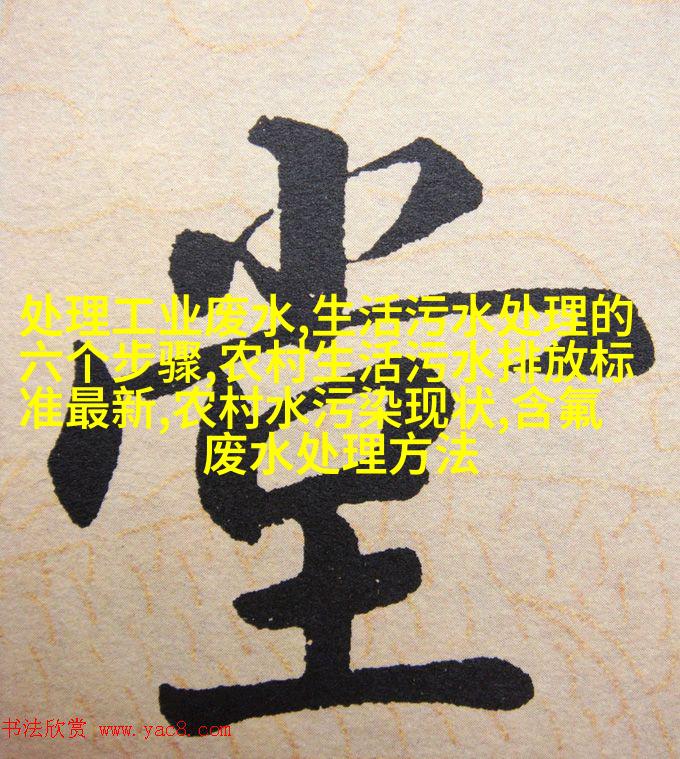 堂
处理工业废水,生活污水处理的
六个步骤,农村生活污水排放标
准最新,农村水污染现状,含氟
废水处理方法
书法欣赏 www.yac8.com